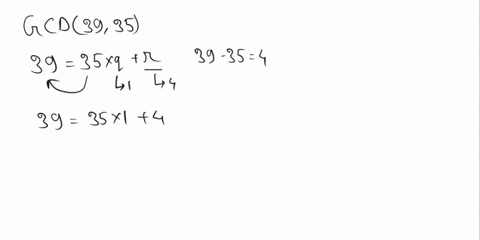 GCD(39,35)
39 = 35×q + r 39-35=4
↳1 ↳4
39 = 35×1 + 4